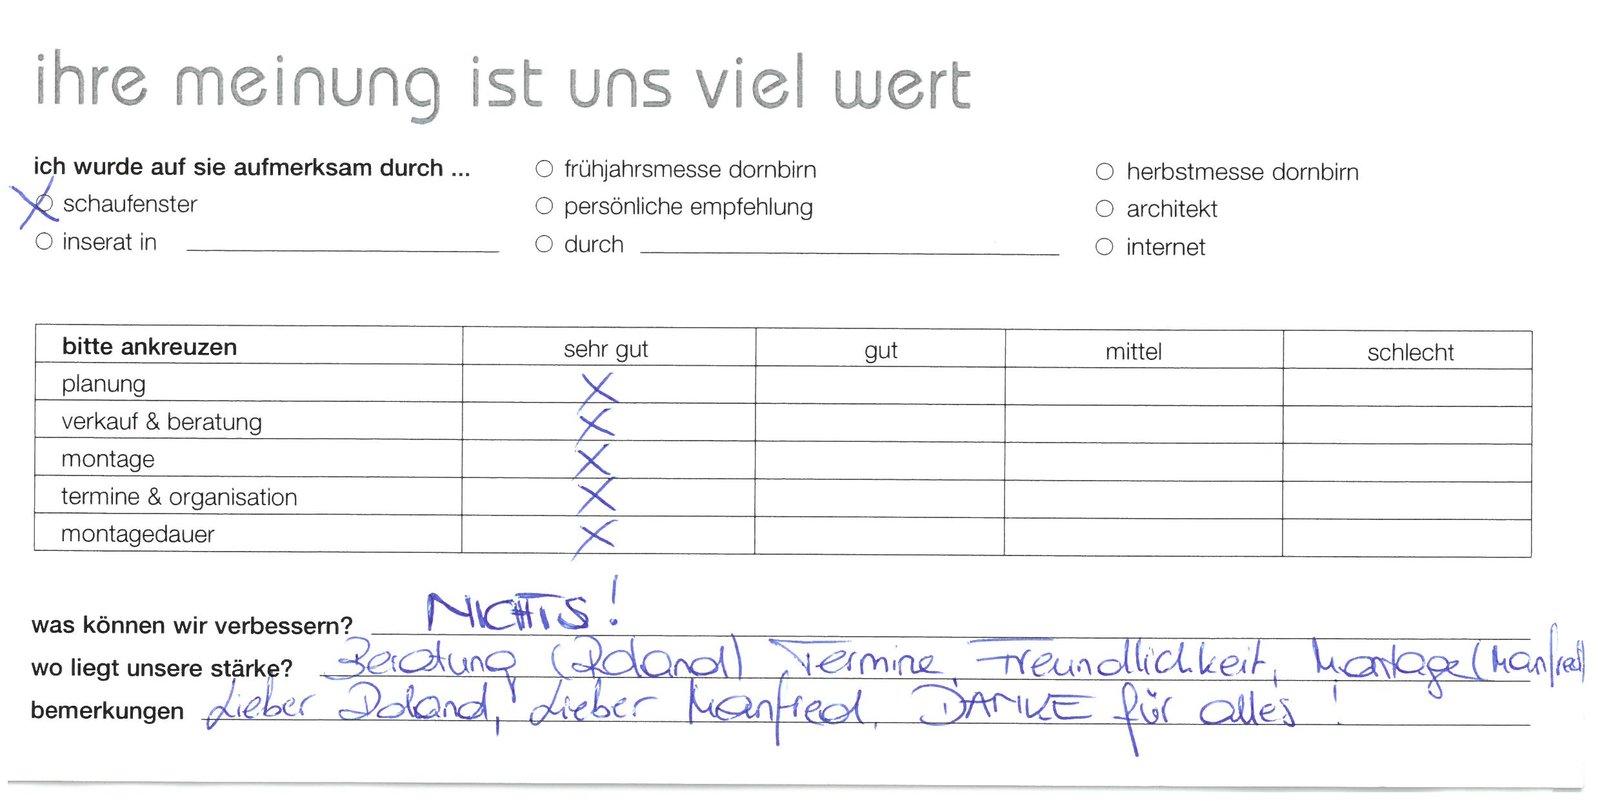 ihre meinung ist uns viel wert
ich wurde auf sie aufmerksam durch ...
schaufenster
inserat in
frühjahrsmesse dornbirn
persönliche empfehlung
durch
herbstmesse dornbirn
architekt
internet
bitte ankreuzen sehr gut gut mittel schlecht
planung X
verkauf & beratung X
montage X
termine & organisation X
montagedauer X
was können wir verbessern? NICHTS!
wo liegt unsere stärke? Beratung (Roland) Termine, Freundlichkeit, Montage (Manfred)
bemerkungen Lieber Roland, Lieber Manfred, DANKE für alles!